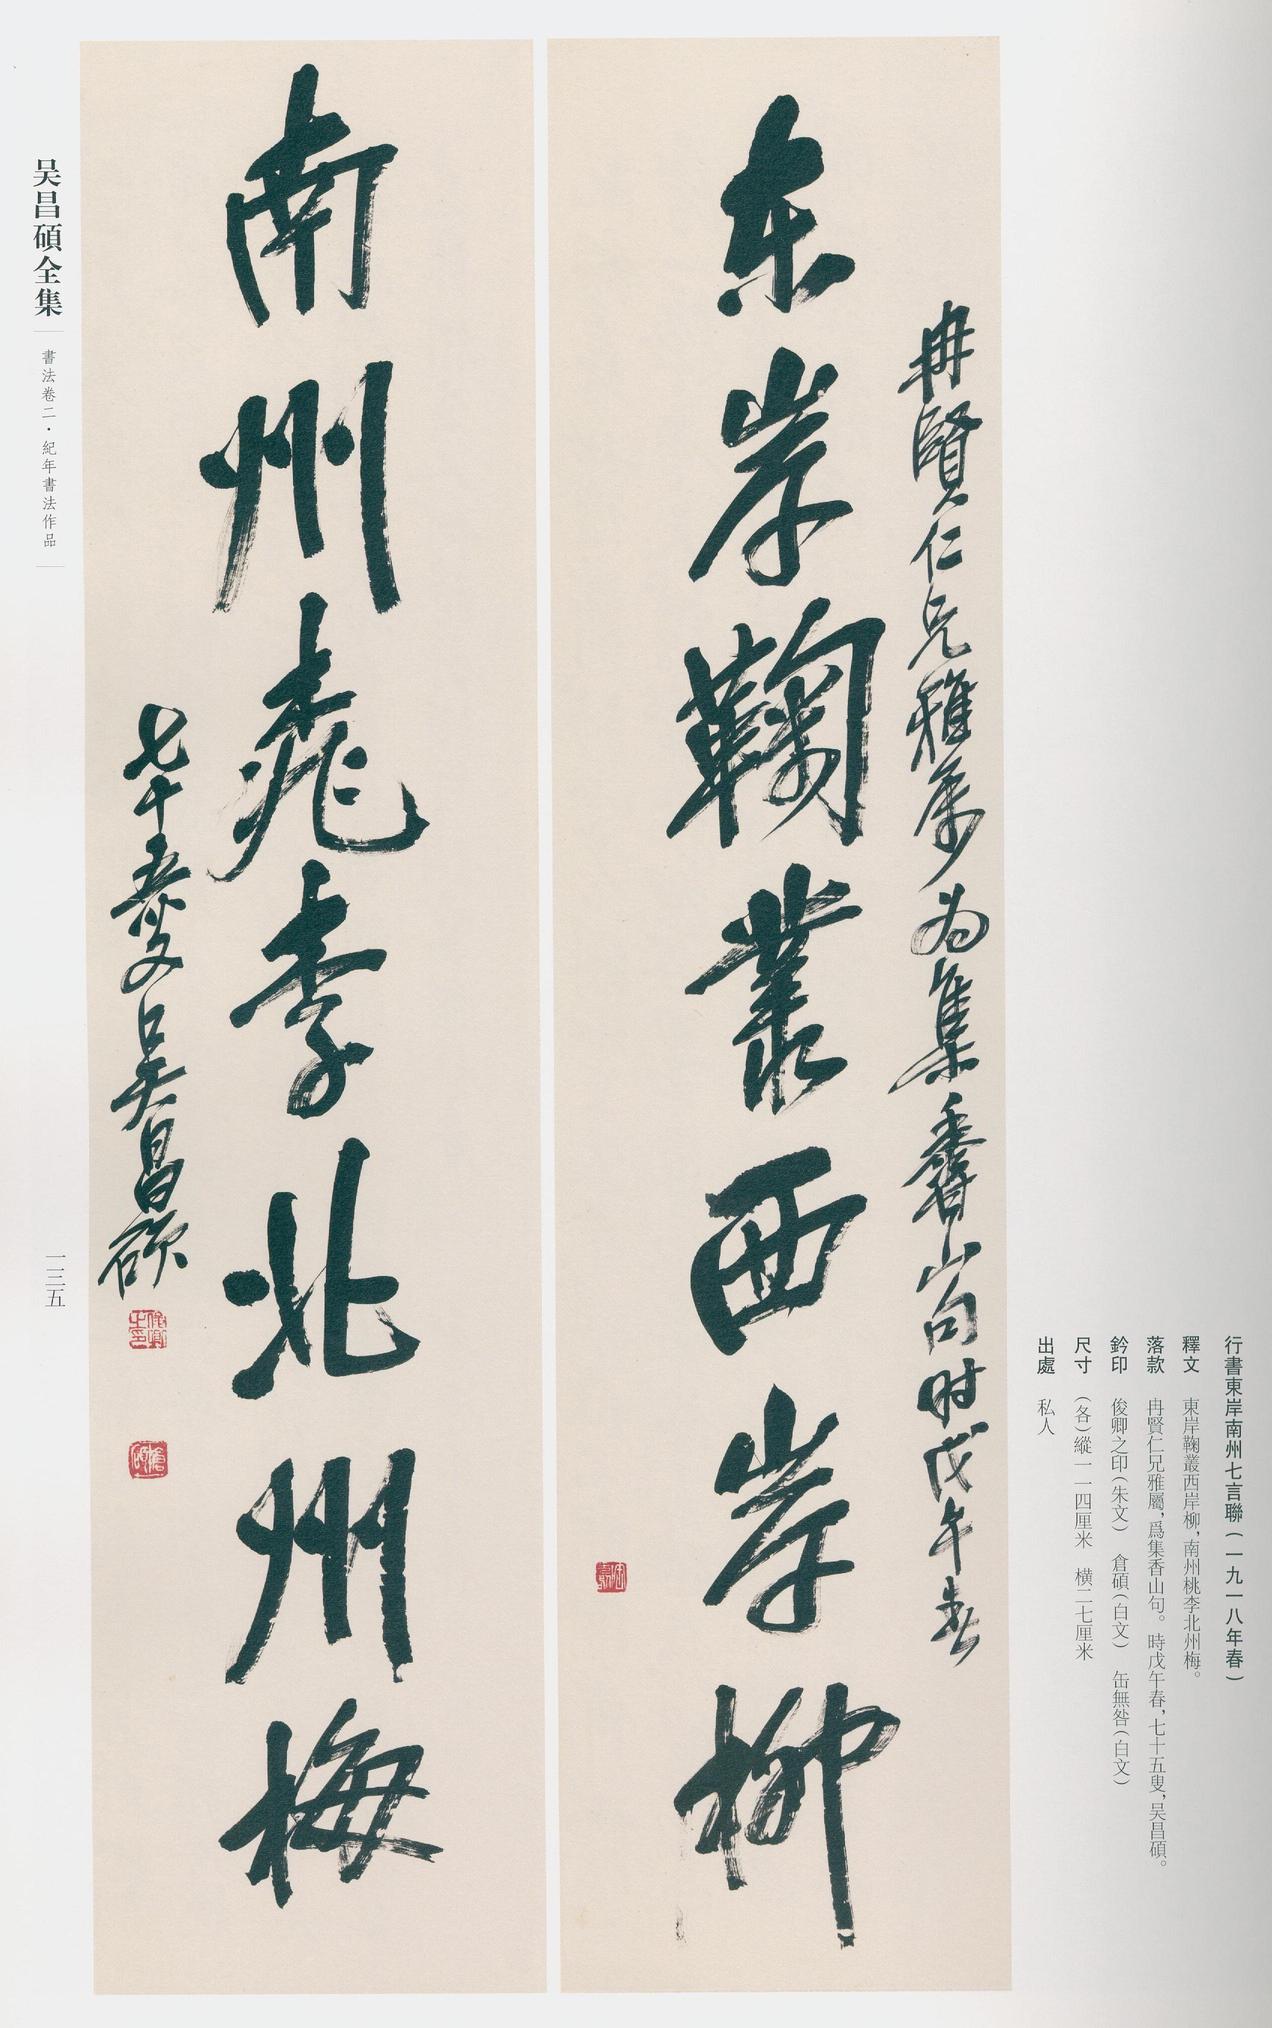 行書東岸南州七言聯（一九一八年春）
釋文　東岸鞠叢西岸柳，南州桃李北州梅。
落款　冉賢仁兄雅屬，爲集香山句。時戊午春，七十五叟，吴昌碩。
鈐印　俊卿之印（朱文）　倉碩（白文）　缶無咎（白文）
尺寸　（各）縱一一四厘米　横二七厘米
出處　私人
冉賢仁兄雅属为集香山句时戊午春
东岸鞠叢西岸柳
南州桃李北州梅
七十五叟吴昌碩
俊卿之印
倉碩
吴昌碩全集
書法卷二·紀年書法作品
一三五